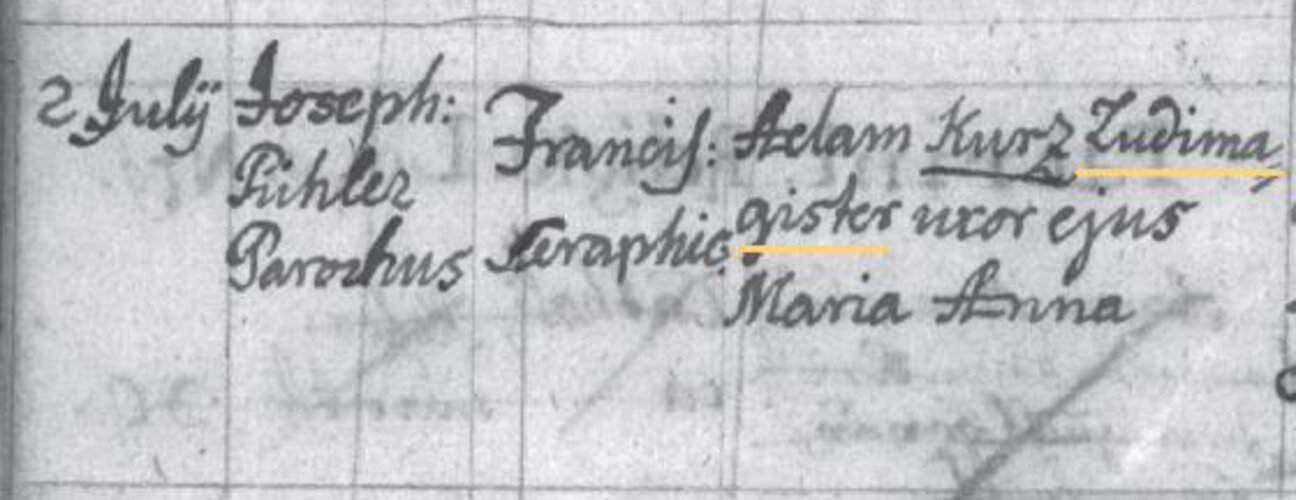 2 Julÿ Joseph: Francis: Adam Kurz Ludima,
Pühler Seraphic. gister uxor ejus
Parochus Maria Anna